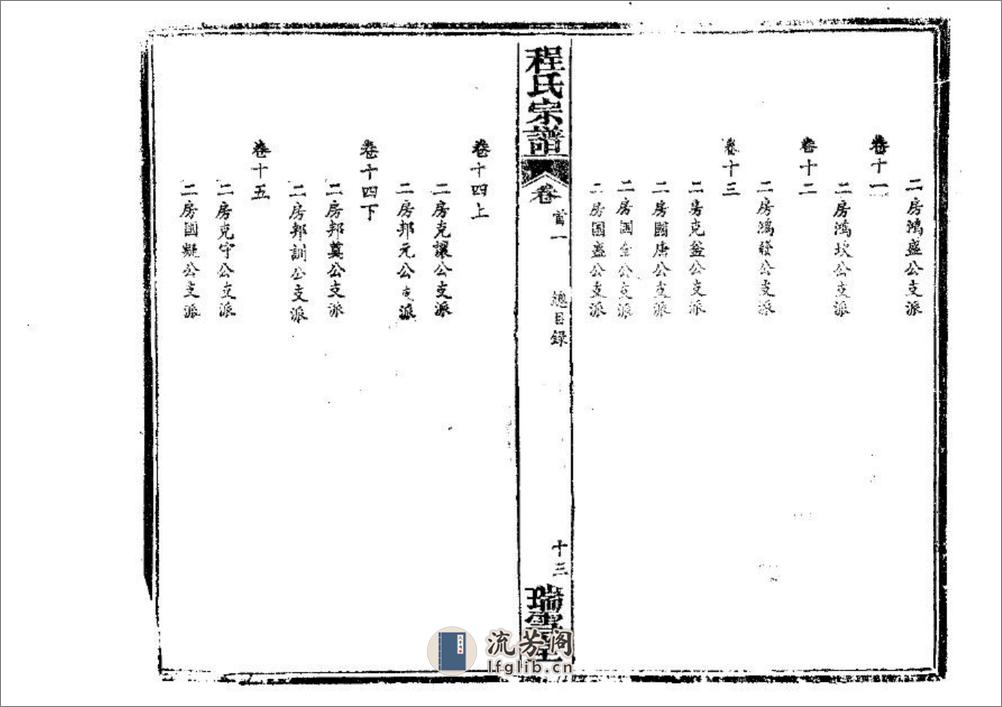 二房鴻盛公支派
卷十一
二房鴻坎公支派
卷十二
二房鴻發公支派
卷十三
二房克盆公支派
二房國唐公支派
二房國全公支派
二房國盛公支派
程氏宗譜
卷
首一
總目錄
十三
瑞雪堂
卷十四上
二房克讓公支派
二房邦元公支派
卷十四下
二房邦冀公支派
二房邦訓公支派
卷十五
二房克守公支派
二房國疑公支派
流芳阁
lfglib.cn